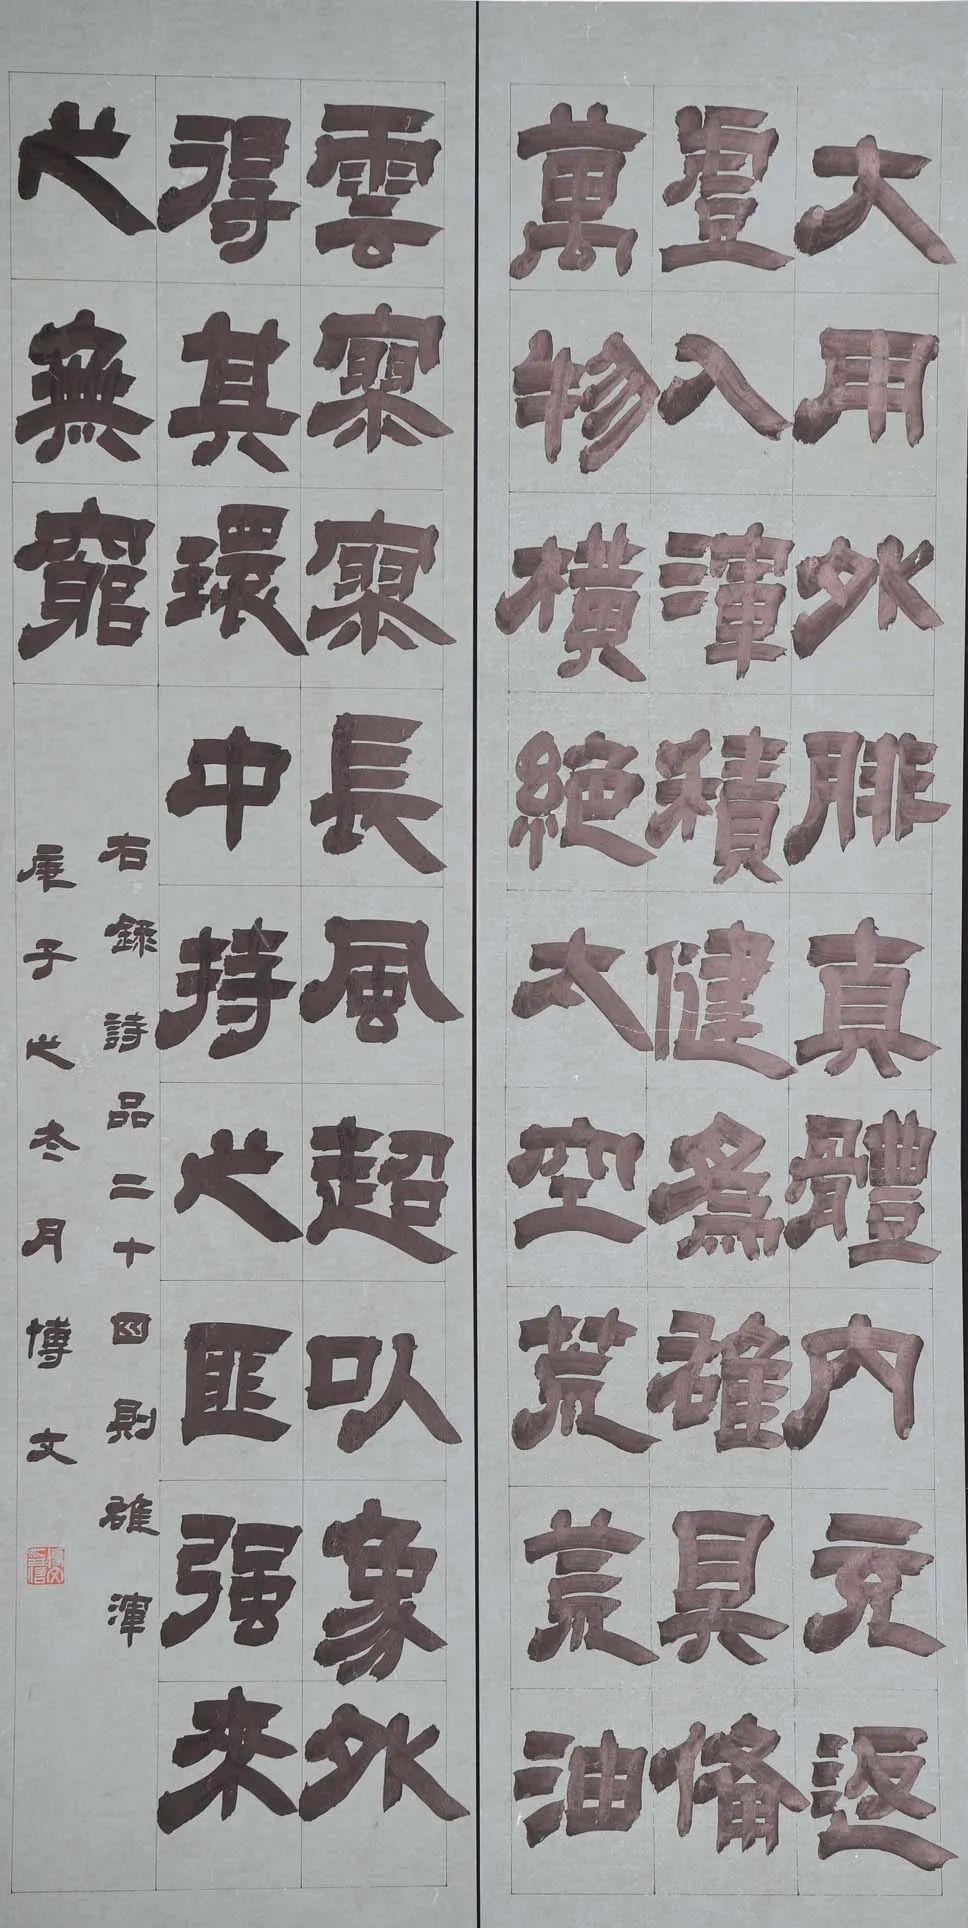 大用外腓真體内充返
虛入渾積健爲雄具備
萬物橫絕太空荒荒油
雲寥寥長風超以象外
得其環中持之匪强来
之無窮
右錄詩品二十四則雄渾
庚子之冬月博文